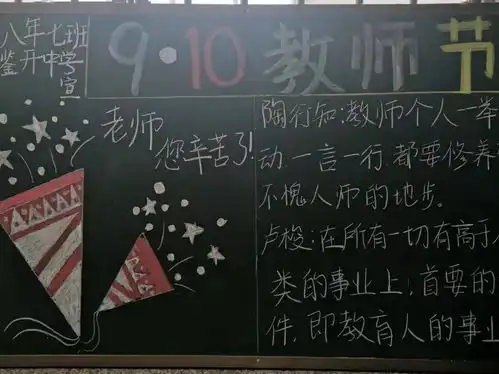 八年七班
鉴开中学
宣
9·10教师节
老师
您辛苦了!
陶行知:教师个人一举
动一言一行都要修养
不愧人师的地步。
卢梭:在所有一切有高于人
类的事业上,首要的
件,即教育人的事业